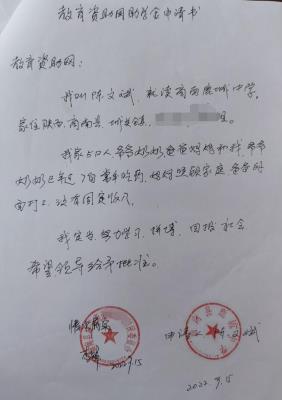 教育资助网助学金申请书
教育资助网：
我叫陈文斌，就读商南县城中学，
家住陕西，商南县，城关镇，
我家5口人爷爷奶奶，爸爸妈妈和我，爷爷
奶奶已年近7旬常年吃药，妈妈照顾家庭爸爸
打工，没有固定收入
我定当，努力学习，拼搏，回报社会
希望领导给予批准。
情况属实
申请 文斌
2022.9.15
2022.9.15